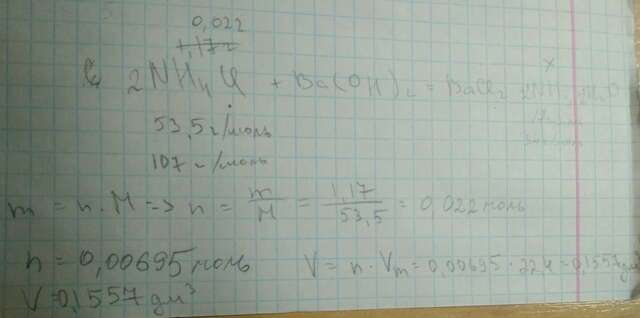 0,022
1,17 г
x
2NH₄Cl + Ba(OH)₂ = BaCl₂ 2NH₃ 2H₂O
53,5 г/моль
107 г/моль
m = n · M => n = m/M = 1,17/53,5 = 0,022 моль
n = 0,00695 моль V = n · Vm = 0,00695 · 22,4 = 0,1557 дм³
V = 0,1557 дм³